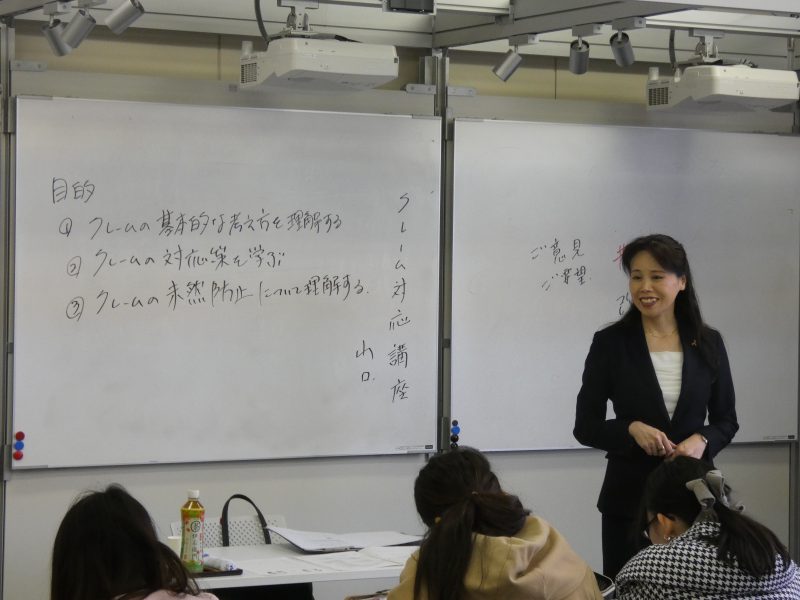 目的
① クレームの基本的な考え方を理解する
② クレームの対応策を学ぶ
③ クレームの未然防止について理解する.
クレーム対応講座
山口.
ご意見
ご要望